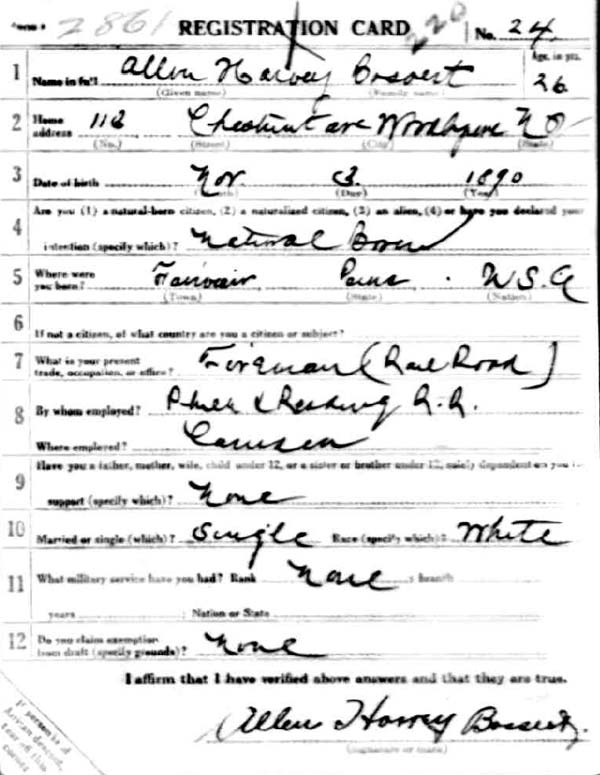 Form 1 2861 REGISTRATION CARD 220 No. 24
1 Name in full Allen Harvey Bossert Age, in yrs. 26
(Given name) (Family name)
2 Home address 112 Chestnut ave Woodbyne
(No.) (Street) (City) (State)
3 Date of birth Nov. 3 1890
(Month) (Day) (Year)
4 Are you (1) a natural-born citizen, (2) a naturalized citizen, (3) an alien, (4) or have you declared your
intention (specify which)? Natural Born
5 Where were you born? Penna. U.S.A
(Town) (State) (Nation)
6 If not a citizen, of what country are you a citizen or subject?
7 What is your present trade, occupation, or office? Fireman (Rail Road)
8 By whom employed? Phila & Reading R.R.
Where employed? Camden
9 Have you a father, mother, wife, child under 12, or a sister or brother under 12, solely dependent on you for
support (specify which)? None
10 Married or single (which)? Single Race (specify which)? White
11 What military service have you had? Rank None branch
years ; Nation or State
12 Do you claim exemption from draft (specify grounds)? None
I affirm that I have verified above answers and that they are true.
Allen Harvey Bossert
(Signature or mark)
If person is of
African descent,
tear off this
corner